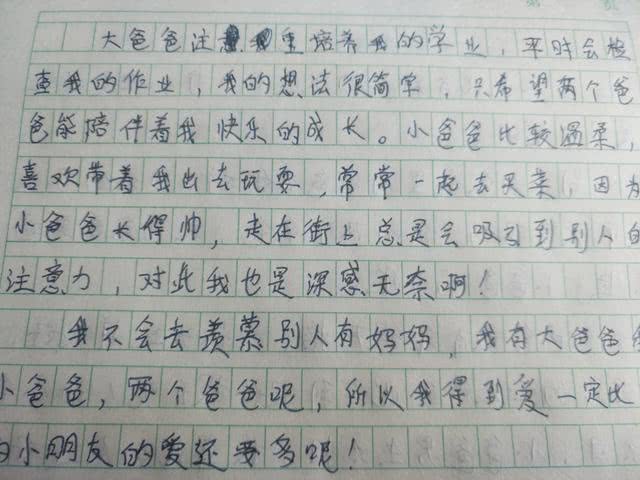 大爸爸注重培养我的学业，平时会检
查我的作业，我的想法很简单，只希望两个爸
爸能陪伴着我快乐的成长。小爸爸比较温柔，
喜欢带着我出去玩耍，常常一起去买菜，因为
小爸爸长得帅，走在街上总是会吸引到别人的
注意力，对此我也是深感无奈啊！
我不会去羡慕别人有妈妈，我有大爸爸
小爸爸，两个爸爸呢，所以我得到爱一定比
小朋友的爱还要多呢！